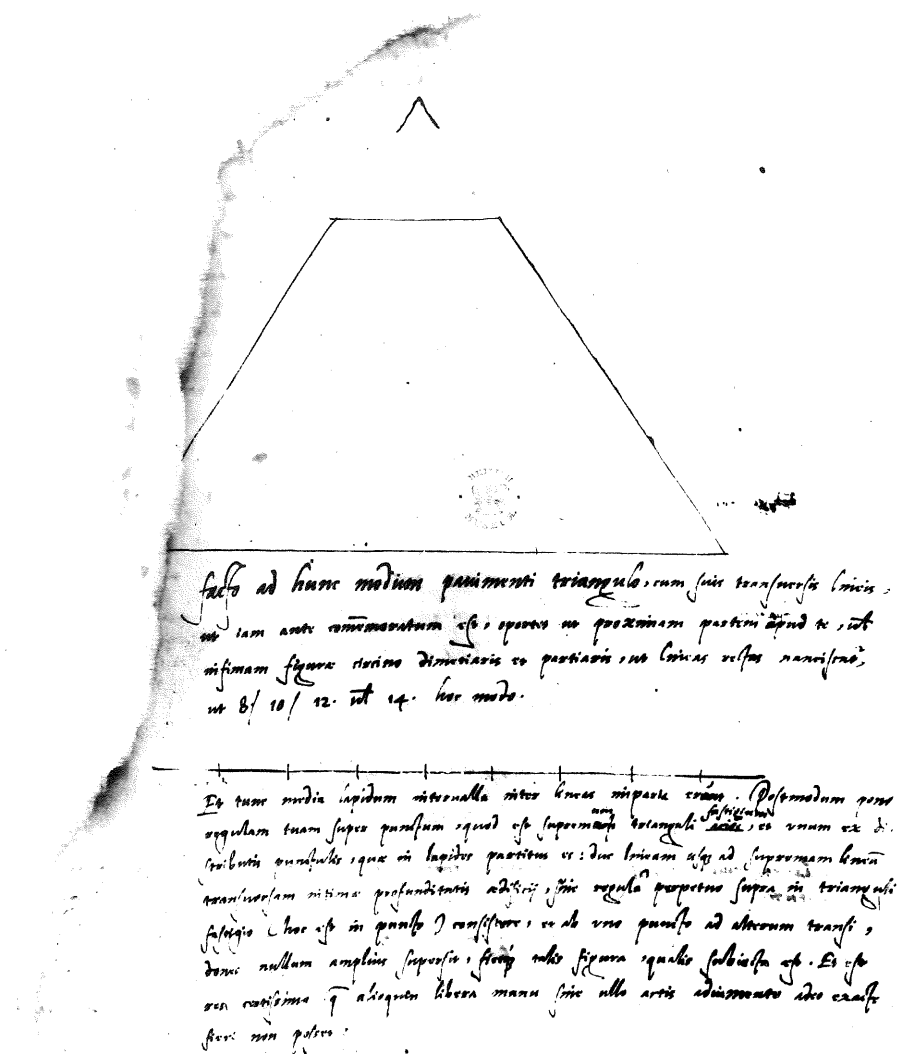 facto ad hunc modum pauimenti triangulo, cum suis transuersis lineis,
ut iam ante com̄emoratum est, oportet ut proximam partem apud te, uel
infimam figuræ circino dimetiaris et partiaris, ut lineas rectas
ut 8/ 10/ 12. uel 14. hoc modo.
Et tunc media lapidum interualla inter lineas imparia erunt. Postmodum pone
regulam tuam super punctum, quod est supremum trianguli fastigium, et unum ex di-
stributis punctulis, quæ in lapides partitus es: duc lineam usq; ad supremam lineam
transuersam intimæ profunditatis ædificij, sine regulā perpetuo supra in trianguli
fastigio (hoc est in puncto) consistere, et ab uno puncto ad alterum transi,
donec nullum amplius supersit, talis figura, qualis subiecta est. Et est
res certissima q̄ alioquin libera manu sine ullo artis adiumento adeo exacte
fieri non posset.